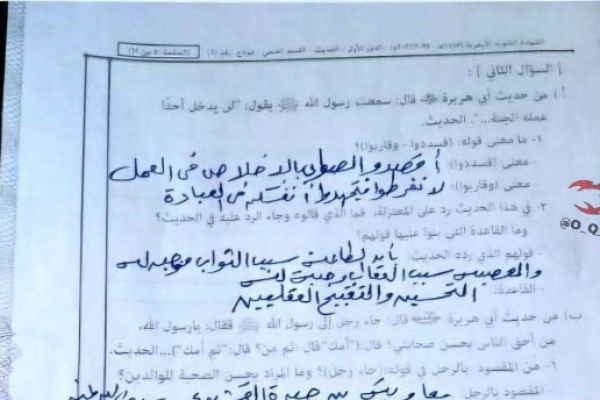 الشهادة الثانوية الأزهرية - الدور الأول - الحديث - القسم العلمي - نموذج رقم (١) (الصفحة ٥ من
[السؤال الثاني] :
أ) من حديث أبي هريرة ﷺ قال: سمعت رسول الله ﷺ يقول: "لن يدخل أحدًا
عمله الجنة..". الحديث.
١- ما معنى قوله: (فسددوا - وقاربوا)؟
- معنى (فسددوا): أقصدوا الصواب بالإخلاص فى العمل
- معنى (وقاربوا): لا تفرطوا فتجهدوا أنفسكم فى العبادة
٢- في هذا الحديث رد على المعتزلة، فما الذي قالوه وجاء الرد عليه في الحديث؟
وما القاعدة التي بنوا عليها قولهم؟
- قولهم الذي ردد الحديث: بأن الطاعة سبب الثواب
والمعصية سبب العقاب
- القاعدة: التحسين والتقبيح العقليين
ب) من حديث أبي هريرة قال: جاء رجل إلى رسول الله ﷺ فقال: يارسول الله،
من أحق الناس بحسن صحابتي؟ قال:("أمك" قال: ثم من؟ قال: "ثم أمك")...الحديث.
١- من المقصود بالرجل في قوله:(جاء رجل)؟ وما المراد بحسن الصحبة للوالدين؟
- المقصود بالرجل: معاوية بن حيدة
@O_Q_